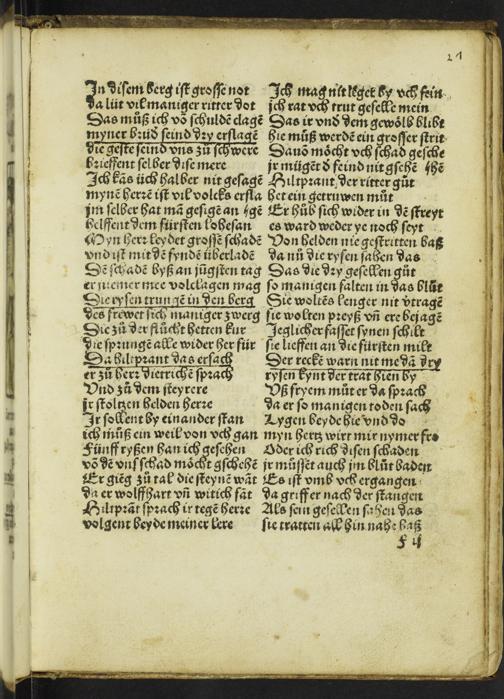 21
In disem berg ist grosse not
da lüt vil maniger ritter dot
Das müß ich vō schuldē clagē
myner brüd seind dry erslagē
die geste seind vns zü schwere
brieffent selber dise mere
Ich kās üch halber nit gesagē
mynē herrē ist vil volcks ersla
jm selber hat mā gesigē an /gē
helffent dem fürsten lobesan
Myn herr leydet grossē schadē
vnd ist mit dē syndē überladē
Dē schadē byß an jügsten tag
er niemer mee volclagen mag
Die rysen trungē in den berg
des frewet sich maniger zwerg
Die zü der flücht hetten kur
die sprungē alle wider her für
Da hiltprant das ersach
er zü herr dietrichē sprach
Vnd zü dem steyrere
jr stoltzen helden herre
Ir sollent by einander stan
ich müß ein weil von vch gan
Fünff ryßen han ich gesehen
vō dē vnß schad möcht gschehē
Er gieg zü tal die steynē wāt
da er wolffhart vn̄ witich fāt
Hiltprāt sprach ir tegē herre
volgent beyde meiner lere
Ich mag nit leger by vch sein
ich rat vch trut geselle mein
Das ir vnd dem gewölb blibt
hie müß werdē ein grosser strit
Dauō möcht vch schad gesche
jr mügēt d feind nit gsehē /hē
Hiltprant, der ritter güt
het ein getruwen müt
Er hüb sich wider in dē streyt
es ward weder ye noch seyt
Von helden nie gestritten baß
da nü die rysen sahen das
Das die dry gesellen güt
so manigen falten in das blüt
Sie woltēs lenger nit v̄tragē
sie wolten preyß vn̄ ere bejagē
Jeglicher fasset synen schilt
sie lieffen an die fürsten milt
Der reckē warn nit me dā dry
rysen kynt der trat hien by
Vß fryem müt er da sprach
da er so manigen toden sach
Lygen beyde hie vnd do
myn hertz wirt mir nymer fro
Oder ich rich disen schaden
jr müsset auch jm blüt baden
Es ist vmb vch ergangen
da griff er nach der stangen
Als sein gesellen sahen das
sie tratten all hin nahe baß
f ij